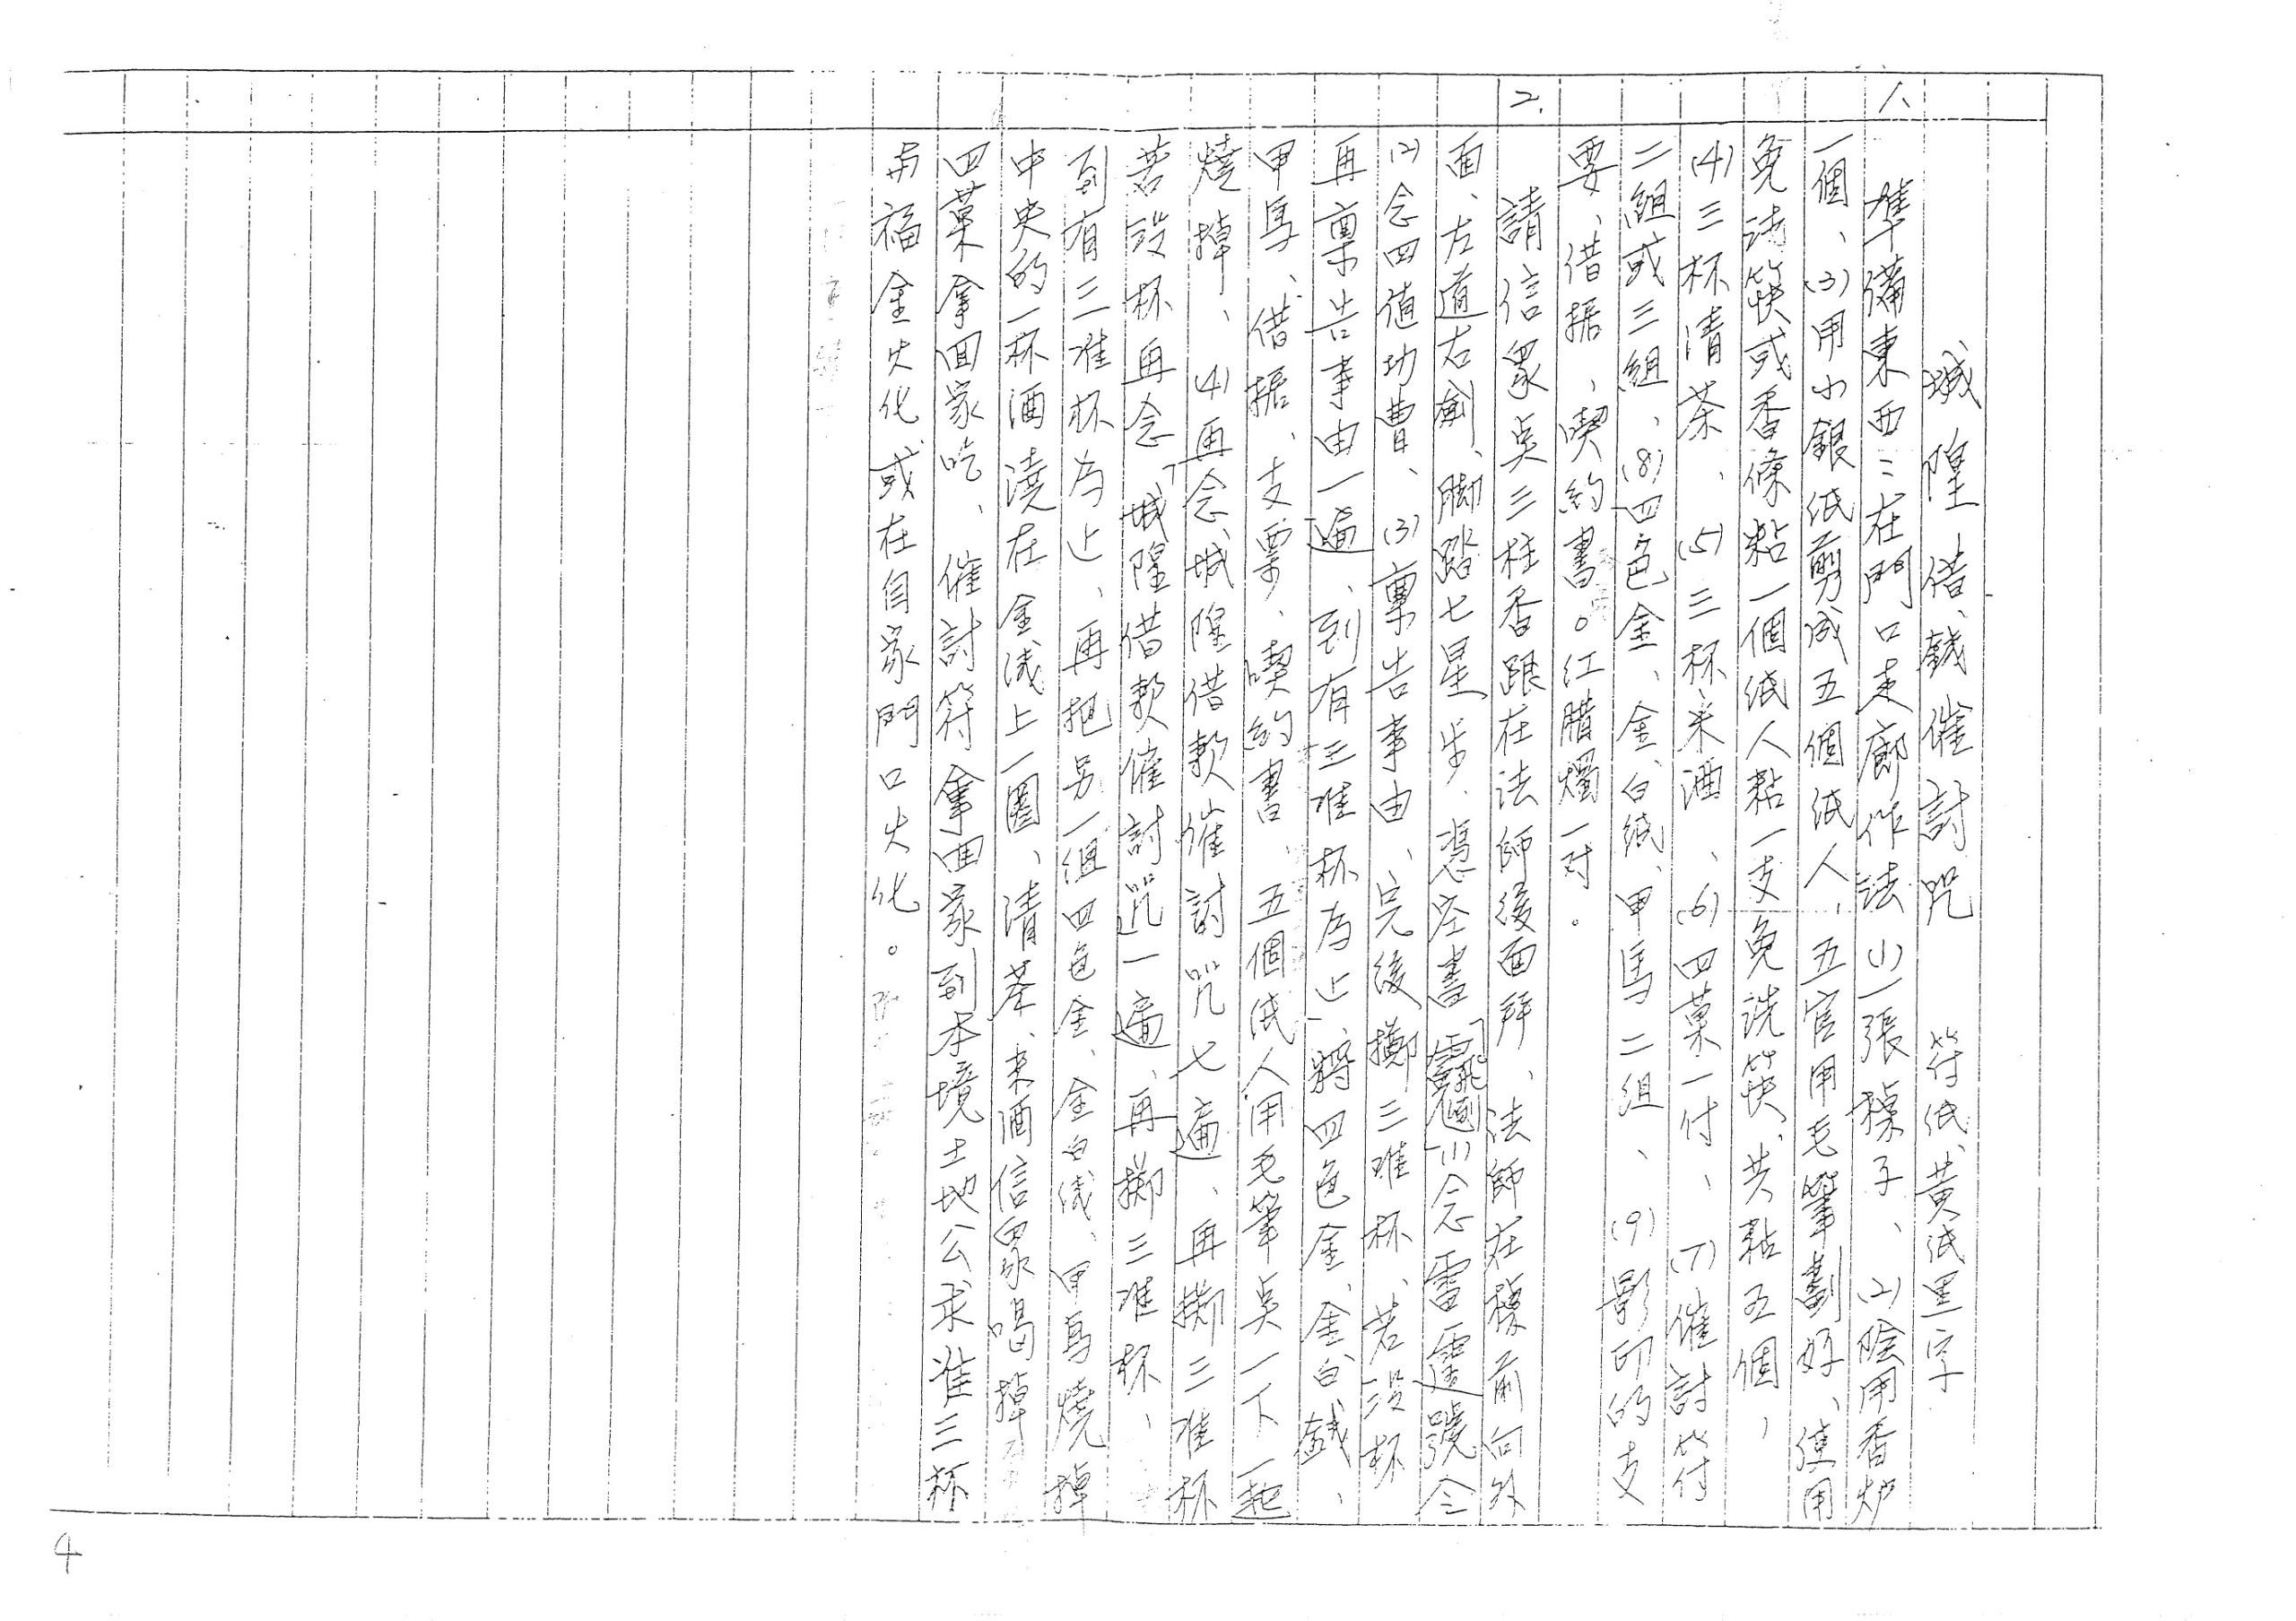 城隍借錢催討咒 符紙、黃紙黑字
1.
準備東西:在門口走廊作法(1)一張棹子、(2)陰用香炉
一個、(3)用小銀紙剪成五個紙人,五官用毛筆劃好、使用
免洗筷或香條粘一個紙人粘一支免洗筷、共粘五個,
(4)三杯清茶、(5)三杯米酒、(6)四菓一付、(7)催討符
二組或三組、(8)四色金、金、白錢、甲馬二組、(9)影印的支
票、借据、喫約書。紅腊燭一対。
2.
請信衆点三柱香跟在法師後面拜、法師在棹前向外
面、左道右劍、脚踏七星步、憑空書「」(1)念雷霆號令
(2)念四值功曹、(3)稟告事由、完後擲三准杯、若沒杯
再稟告事由一遍、到有三准杯為止、將四色金、金、白錢、
甲馬、借据、支票、喫約書、五個紙人用毛筆点一下一起
燒掉、(4)再念、城隍借款催討咒七遍、再擲三准杯
若沒杯再念、「城隍借款催討咒」一遍、再擲三准杯、
到有三准杯為止、再把另一組四色金、金白錢、甲馬燒掉
中央的一杯酒澆在金錢上一圈、清茶、米酒信衆喝掉
四菓拿回家吃、催討符拿回家到本境土地公求准三杯
与福金火化或在自家門口火化。
4